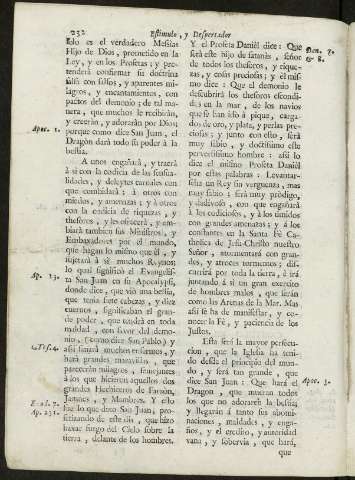 232 Estimulo, y Despertador
solo es el verdadero Messias
Hijo de Dios, prometido en la
Ley, y en los Profetas; y pre-
tenderà confirmar su doctrina
falsa con falsos, y aparentes mi-
lagros, y encantamientos, con
pactos del demonio; de tal ma-
nera, que muchos le recibiràn,
y creeràn, y adoraràn por Dios;
porque como dice San Juan, el
Dragòn darà todo su poder à la
bestia.
Apoc. 1.
A unos engañarà, y traerà
à sì con la codicia de las sensua-
lidades, y deleytes carnales con
que combidarà; à otros con
miedos, y amenazas; y à otros
con la codicia de riquezas, y
thesoros, y les ofrecerà, y em-
biarà tambien sus Ministros, y
Embaxadores por el mundo,
que hagan lo mismo que èl, y
sujetarà à sì muchos Reynos;
lo qual significò el Evangelis-
ta San Juan en su Apocalypsi,
donde dice, que viò una bestia,
que tenia siete cabezas, y diez
cuernos, significaban el gran-
de poder, que tendrà en toda
maldad, con favor del demo-
nio, (como dice San Pablo) y
assi sanarà muchos enfermos, y
harà grandes maravillas, que
pareceràn milagros, semejantes
à los que hicieron aquellos dos
grandes Hechiceros de Faraòn,
Jannes, y Mambres. Y esto
fue lo que dixo San Juan, pro-
fetizando de este dia, que hizo
baxar fuego del Cielo sobre la
tierra, delante de los hombres.
Ap. 13.
Y el Profeta Danièl dice: Que
serà este hijo de satanàs, señor
de todos los thesoros, y rique-
zas, y cosas preciosas; y èl mis-
mo dice: Que el demonio le
descubrirà los thesoros escondi-
dos en la mar, de los navios
que se han ido à pique, carga-
dos de oro, y plata, y perlas pre-
ciosas; y junto con esto, serà
muy sabio, y doctissimo este
perversissimo hombre: assi lo
dice el mismo Profeta Danièl
por estas palabras: Levantar-
seha un Rey sin verguenza, mas
muy sabio; serà muy pròdigo,
y dadivoso, con que engañarà
à los codiciosos, y à los timidos
con grandes amenazas; y à los
constantes en la Santa Fè Ca-
tholica de Jesu-Christo nuestro
Señor, atormentarà con gran-
des, y atroces tormentos; dis-
currirà por toda la tierra, è irà
juntando à sì un gran exercito
de hombres malos, que seràn
como las Arenas de la Mar. Mas
assi se ha de manifestar, y co-
nocer la Fè, y paciencia de los
Justos.
Dan. 7.
& 8.
Esta serà la mayor persecu-
cion, que la Iglesia ha teni-
do desde el principio del mun-
do, y serà tan grande, que
dice San Juan: Que harà el
Dragon, que mueran todos
los que no adoraren la bestia;
y llegaràn à tanto sus abomi-
naciones, maldades, y enga-
ños, y el credito, y autoridad
vana, y sobervia, que harà,
que